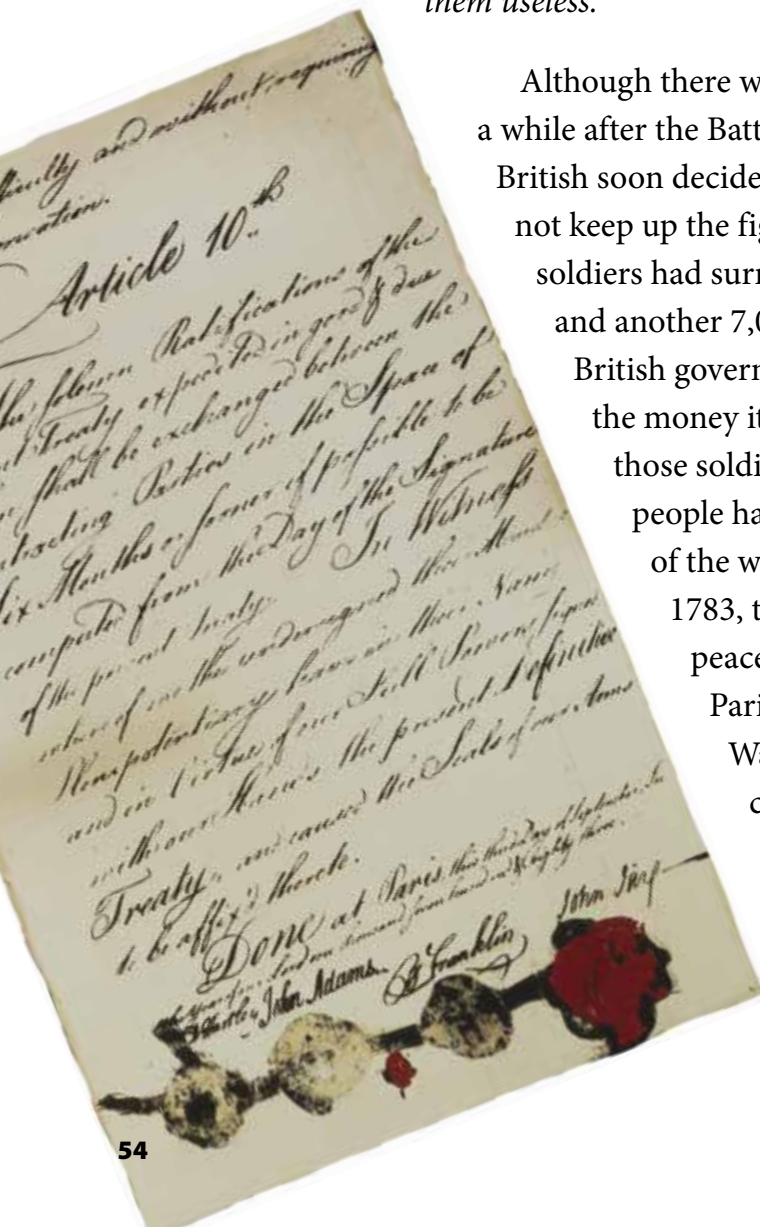 them useless.
Although there w
a while after the Batt
British soon decide
not keep up the fig
soldiers had surr
and another 7,0
British govern
the money it
those soldi
people ha
of the w
1783, t
peace
Pari
Wa
c
ficulty and without requiring
Article 10.th
solemn Ratifications of the
Treaty expedited in good & due
shall be exchanged between the
Parties in the Space of
Six Months or sooner if possible to be
computed from the Day of the Signature
of the present Treaty. In Witness
whereof we the undersigned their
Plenipotentiary have in their Name
and in Virtue of our Full Powers signed
with our Hands the present Definitive
Treaty, and caused the Seals of our Arms
to be affix'd thereto.
Done at Paris, this third Day of September, In
John Adams. B Franklin John Jay
54